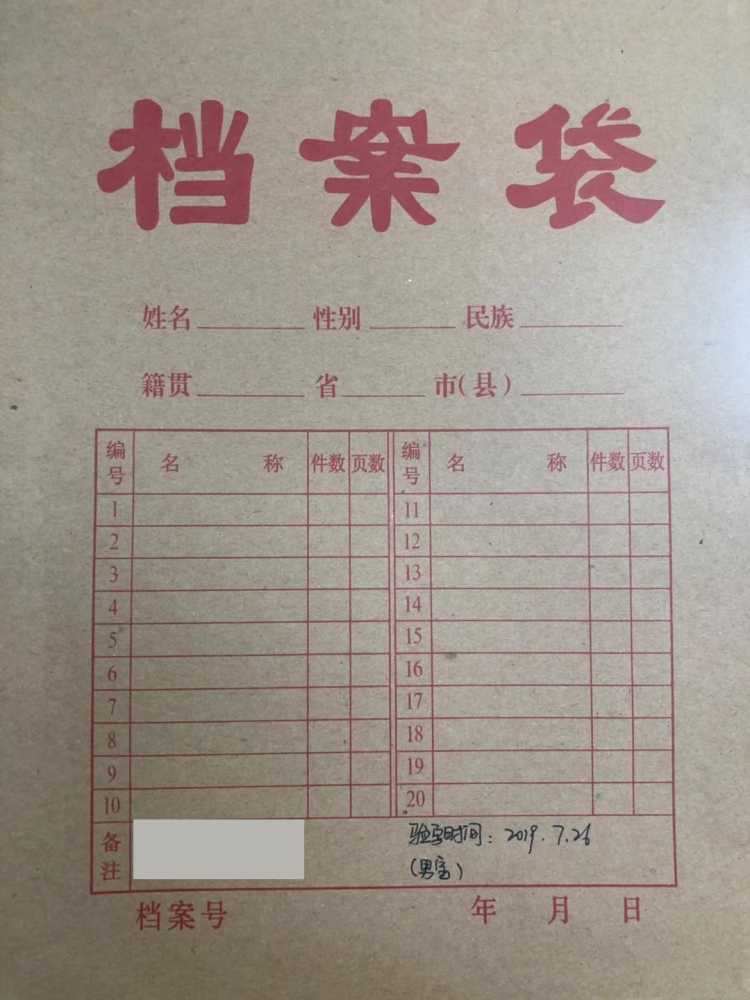 档案袋
姓名 性别 民族
籍贯 省 市(县)
编号 名 称 件数 页数 编号 名 称 件数 页数
1 11
2 12
3 13
4 14
5 15
6 16
7 17
8 18
9 19
10 20
备注 验孕时间：2019.7.26
(男宝)
档案号 年 月 日